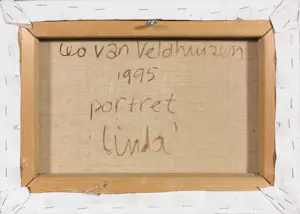 Leo van Veldhuizen
1995
portret
'Linda'